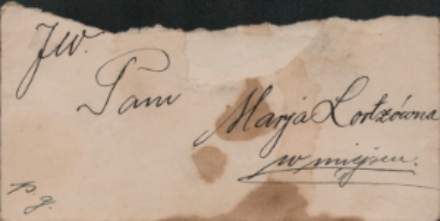 JW.
Pani
Marja Lortzówna
w miejscu.
p. g.